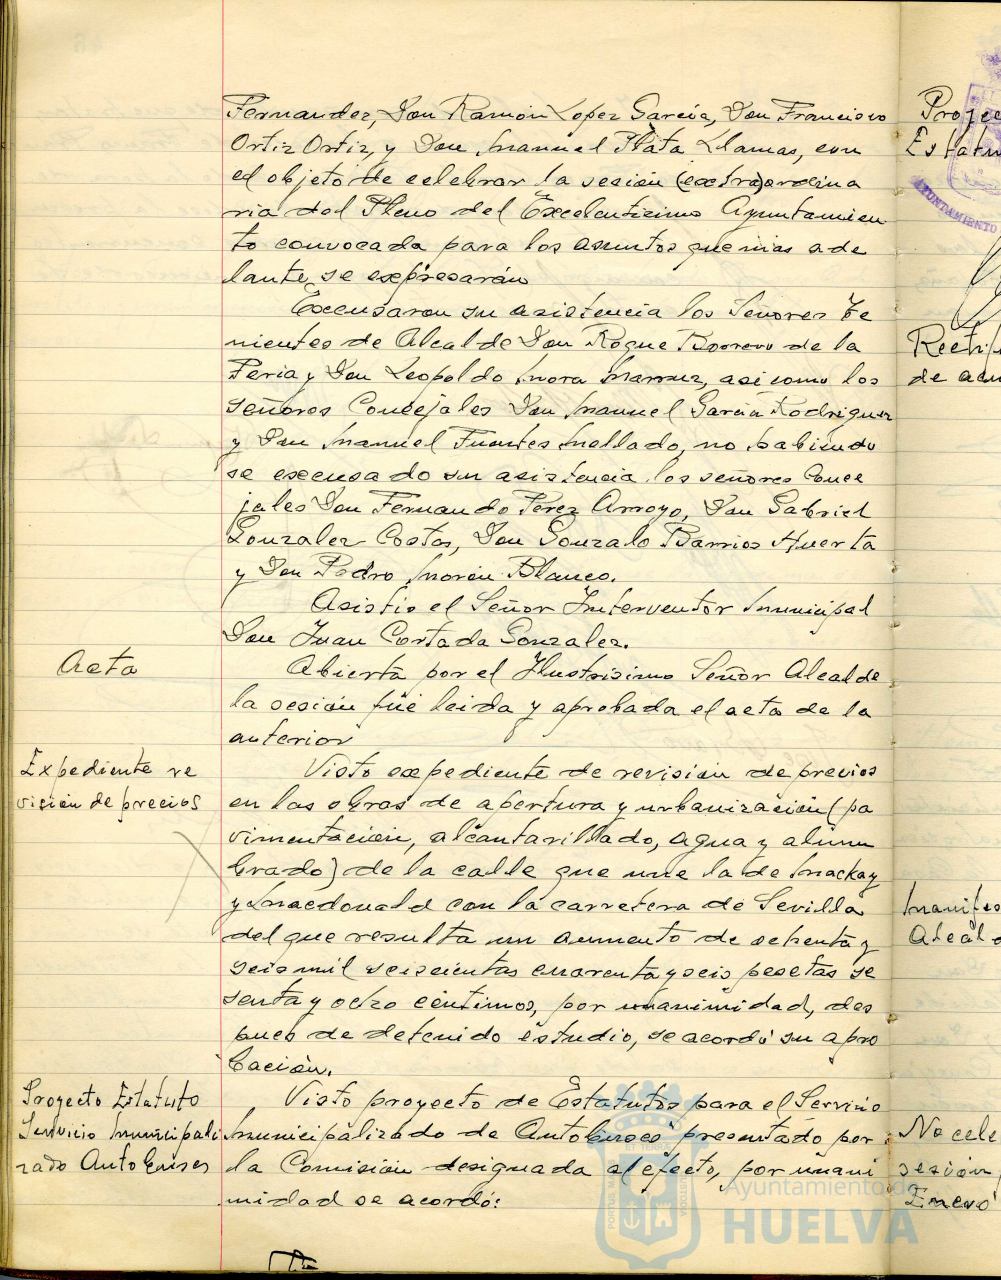 Fernandez, Don Ramón Lopez García, Don Francisco
Ortiz Ortiz, y Don Manuel Plata Llamas, con
el objeto de celebrar la sesión (extra)ordina
ria del Pleno del Excelentísimo Ayuntamien
to convocada para los asuntos que mas ade
lante, se expresarán
Excusaron su asistencia los Señores Te
nientes de Alcalde Don Roque Borrero de la
Feria y Don Leopoldo Mora, asi como los
señores Concejales Don Manuel García Rodriguez
y Don Manuel Fuentes Mellado, no habiendo
se excusado su asistencia los señores Conce
jales Don Fernando Perez Arroyo, Don Gabriel
Gonzalez Costas, Don Gonzalo Barrios Huerta
y Don Pedro Morón Blanco.
Asistio el Señor Interventor Municipal
Don Juan Cortada Gonzalez.
Acta
Abierta por el Ilustrisimo Señor Alcalde
la sesión fué leida y aprobada el acta de la
anterior
Expediente re
visión de precios
Visto expediente de revisión de precios
en las obras de apertura y urbanización (pa
vimentación, alcantarillado, agua y alum
brado) de la calle que une la de Mackay
y Macdonald con la carretera de Sevilla
del que resulta un aumento de setenta y
seis mil seiscientas cuarenta y seis pesetas se
senta y ocho céntimos, por unanimidad, des
pues de detenido estudio, se acordó su apro
bación.
Proyecto Estatuto
Servicio Municipali
zado Autobuses
Visto proyecto de Estatutos para el Servicio
Municipalizado de Autobuses presentado por
la Comisión designada al efecto, por unani
midad se acordó:
Proyec
Estatu
AYUNTAMIENTO
Rectifi
de acu
Manifes
Alcal
No cele
sesión
Enero
PORTUS MARIS
Ayuntamiento de
HUELVA